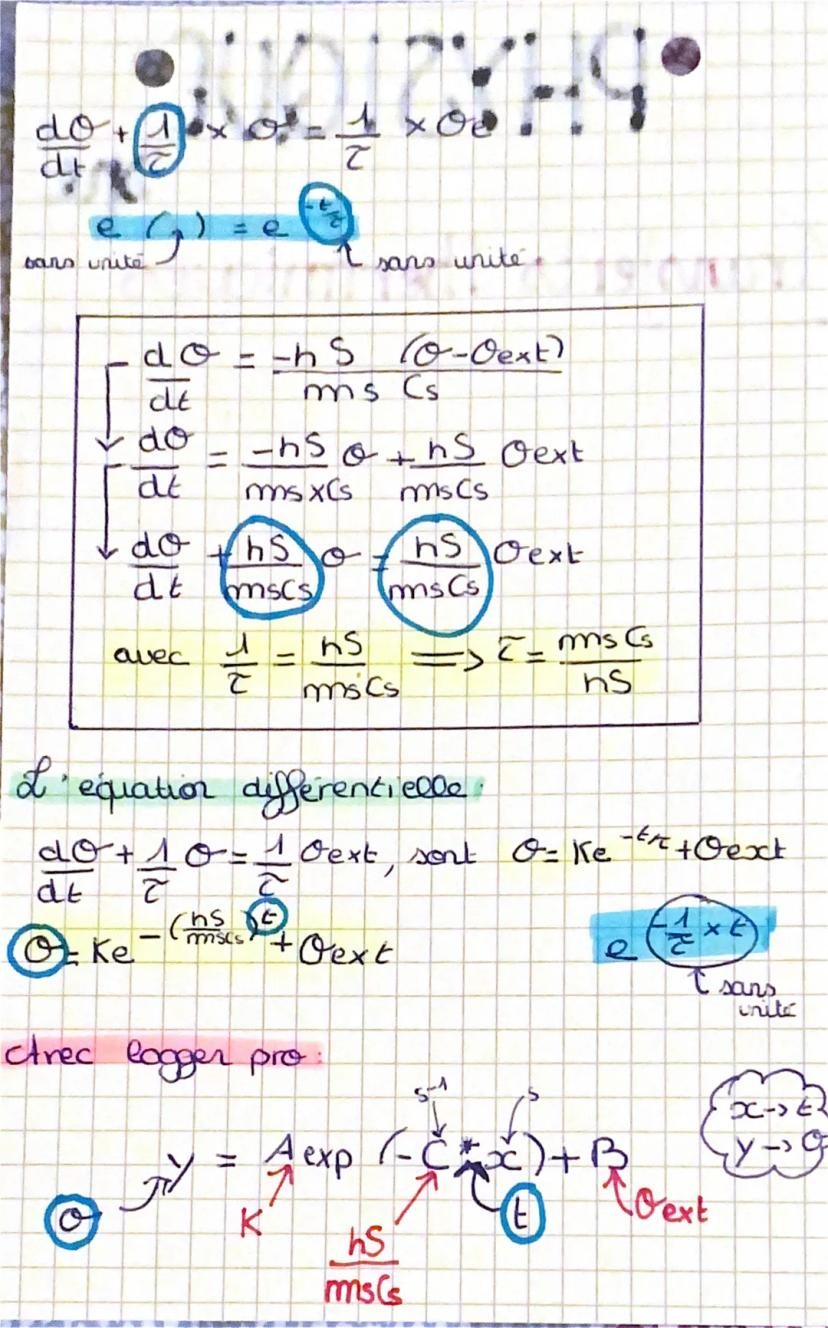 dθ/dt + 1/τ × θ = 1/τ × θe
e ( ) = e^(-t/τ)
sans unité sans unité
dθ/dt = -hS (θ-θext) / ms Cs
dθ/dt = -hS/ms×Cs θ + hS/msCs θext
dθ/dt + hS/msCs θ = hS/msCs θext
avec 1/τ = hS/msCs ⟹ τ = msCs/hS
L'équation différentielle:
dθ/dt + 1/τ θ = 1/τ θext, sont θ = Ke^(-t/τ) + θext
θ = Ke^(-(hS/msCs)t) + θext
e^(-1/τ × t)
sans
unité
Avec logger pro:
s⁻¹ s
x → t
y → θ
y = A exp (-C * x) + B
θ K t θext
hS/msCs